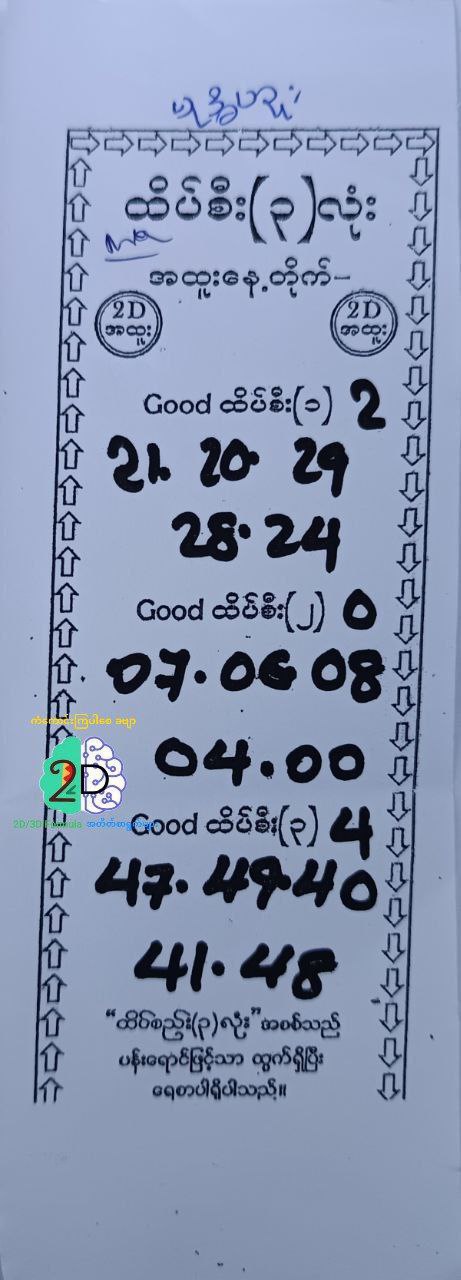 ထိပ်စီး(၃)လုံး
အထူးနေ့တိုက်-
2D
အထူး
2D
အထူး
Good ထိပ်စီး(၁) 2
21. 20. 29
28. 24
Good ထိပ်စီး(၂) 0
07. 06 08
04. 00
ကံကောင်းကြပါစေ ခဗျာ
2D
2D/3D Formula
Good ထိပ်စီး(၃) 4
47. 49. 40
41. 48
"ထိပ်စည်း(၃)လုံး" အစစ်သည်
ပန်းရောင်ဖြင့်သာ ထွက်ရှိပြီး
ရေစာပါရှိပါသည်။